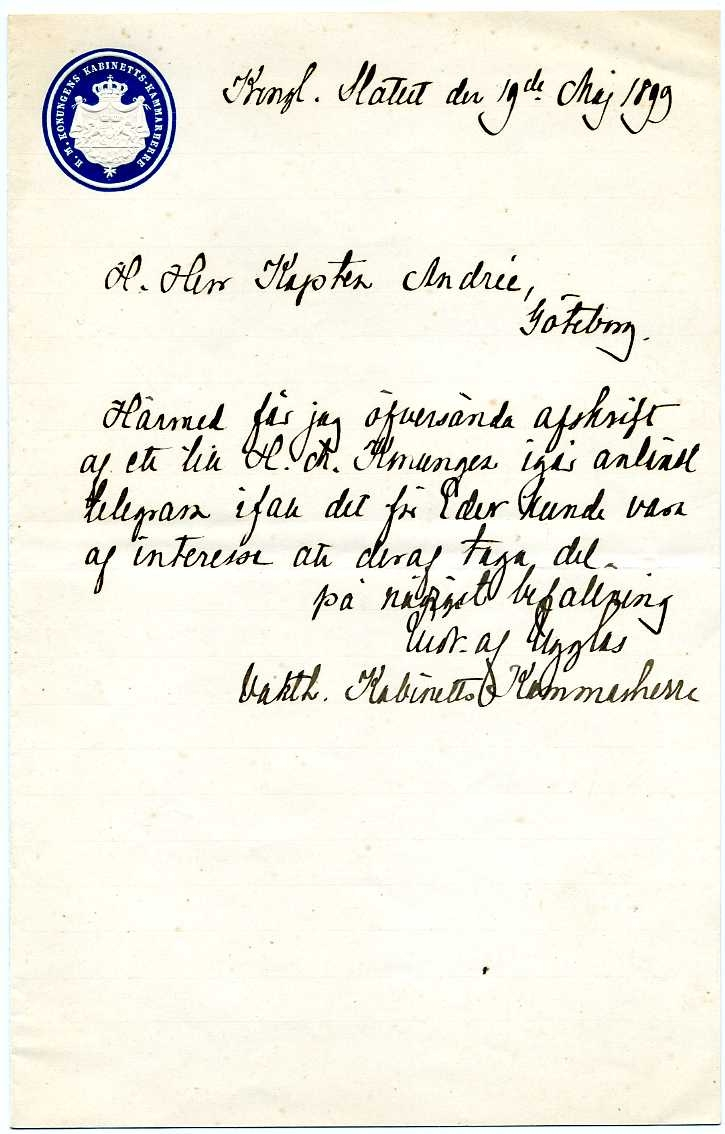 H. M. KONUNGENS KABINETTS-KAMMARHERRE
Kongl. Slottet den 19de Maj 1899
H. Herr Kapten Andrée,
Göteborg.
Härmed får jag öfversända afskrift
af ett till H. M. Konungen igår anländt
telegram ifall det för Eder kunde vara
af interesse att deraf taga del.
på nådigst befallning
af Ugglas
Vakth. Kabinetts Kammarherre